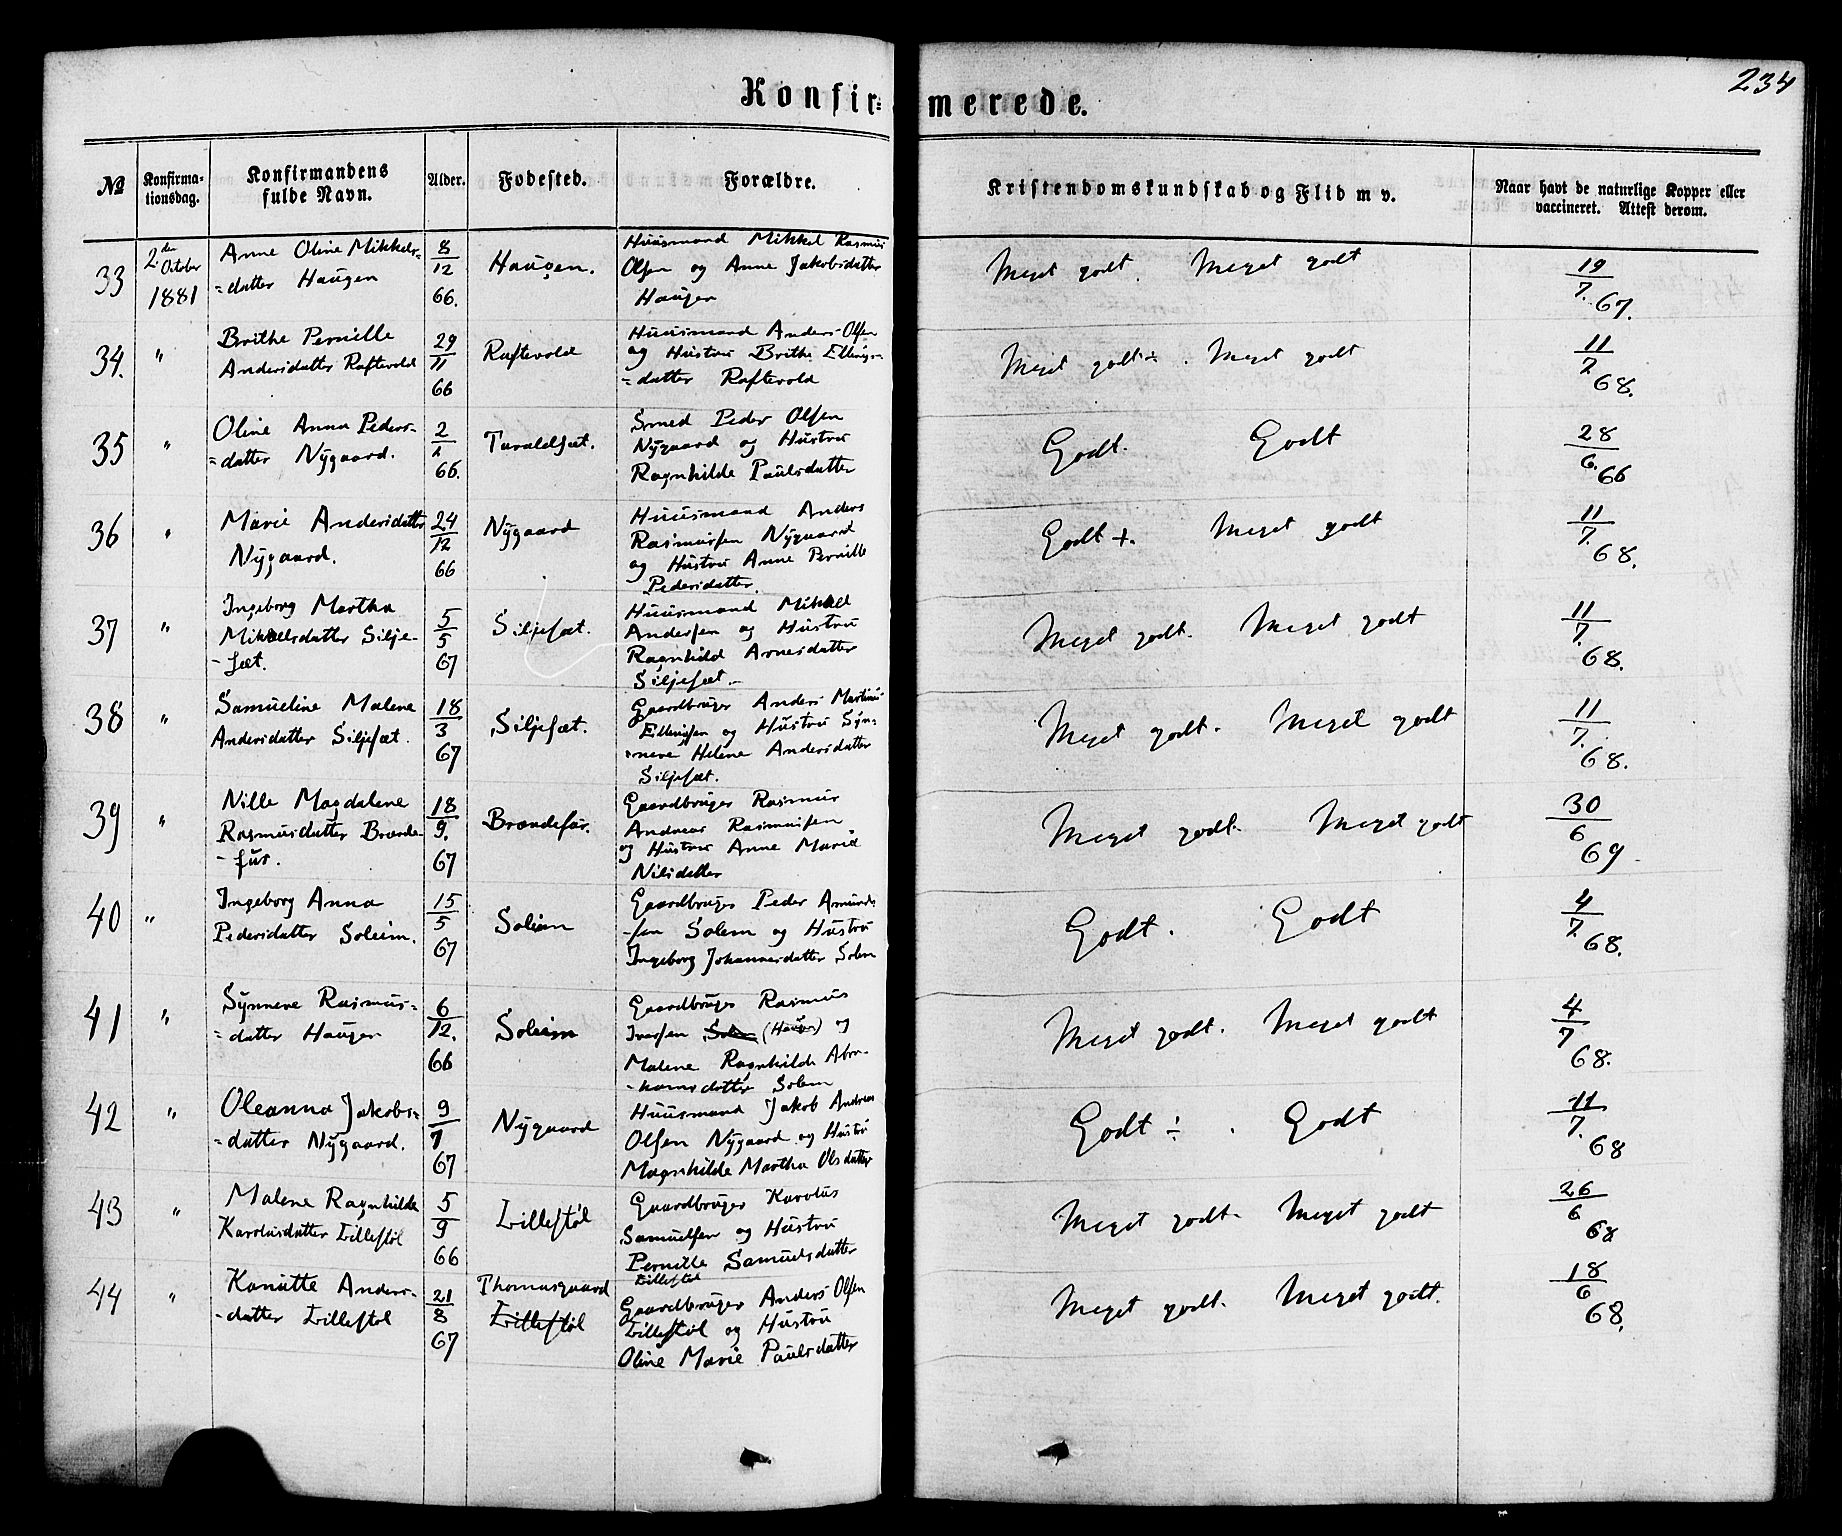 234
Konfir= merede.
№ Konfirma-tionsdag. Konfirmandens fulde Navn. Alder. Fødested. Forældre. Kristendomskundskab og Flid m v. Naar havt de naturlige Kopper eller vaccineret. Attest derom.
33 2den October 1881
Anne Oline Mikkels-
=datter Haugen
8/12 66.
Haugen.
Huusmand Mikkel Rasmus
Olsen og Anne Jakobsdatter
Haugen
Meget godt. Meget godt
19/7. 67.
34. "
Brithe Pernille
Andersdatter Raftevold
29/11 66
Raftevold
Huusmand Anders Olsen
og Hustru Brithe Ellings-
=datter Raftevold
Meget godt ÷. Meget godt
11/7. 68.
35 "
Oline Anna Peders-
=datter Nÿgaard.
66.
Taraldset.
Smed Peder Olsen
Nÿgaard og Hustru
Ragnhilde Paulsdatter
Godt. Godt
28/6. 66
36 "
Marie Andersdatter
Nÿgaard.
24/12 66
Nÿgaard
Huusmand Anders
Rasmussen Nÿgaard
og Hustru Anne Pernille
Pedersdatter.
Godt +. Meget godt
11/7. 68.
37 "
Ingeborg Martha
Mikkelsdatter Silje-
-sæt.
5/5 67
Siljesæt.
Huusmand Mikkel
Andersen og Hustru
Ragnhild Arnesdatter
Siljesæt.
Meget godt. Meget godt
11/7. 68.
38 "
Samueline Malene
Andersdatter Siljesæt.
18/3 67
Siljesæt.
Gaardbruger Anders Martinus
Ellingsen og Hustru Sÿn-
-neve Helene Andersdatter
Siljesæt.
Meget godt. Meget godt
11/7. 68.
39 "
Nille Magdalene
Rasmusdatter Brande-
-fur.
18/9. 67
Brandefur.
Gaardbruger Rasmus
Andreas Rasmussen
og Hustru Anne Marie
Nilsdatter
Meget godt. Meget godt
30/6 69.
40 "
Ingeborg Anna
Pedersdatter Soleim.
15/5 67
Soleim
Gaardbruger Peder Amunds
-sen Solem og Hustru
Ingeborg Johannesdatter Solem
Godt. Godt
4/7. 68.
41 "
Sÿnneve Rasmus-
=datter Haugen
6/12. 66
Soleim
Gaardbruger Rasmus
Iversen Solem (Haugen) og
Malene Ragnhilde Abra-
-hamsdatter Solem
Meget godt. Meget godt
4/7 68.
42 "
Oleanna Jakobs-
=datter Nÿgaard.
67
Nÿgaard
Huusmand Jakob Andreas
Olsen Nÿgaard og Hustru
Magnhilde Martha Olsdatter
Godt ÷. Godt
11/7. 68
43 "
Malene Ragnhilde
Karolusdatter Lillestøl
5/9 66
Lillestøl
Gaardbruger Karolus
Samuelsen og Hustru
Pernille Samuelsdatter
Lillestøl
Meget godt. Meget godt
26/6 68
44 "
Kanutte Anders-
-datter Lillestøl
21/8 67
Thomasgaard
Lillestøl
Gaardbruger Anders Olsen
Lillestøl og Hustru
Oline Marie Paulsdatter
Meget godt. Meget godt.
18/6 68.